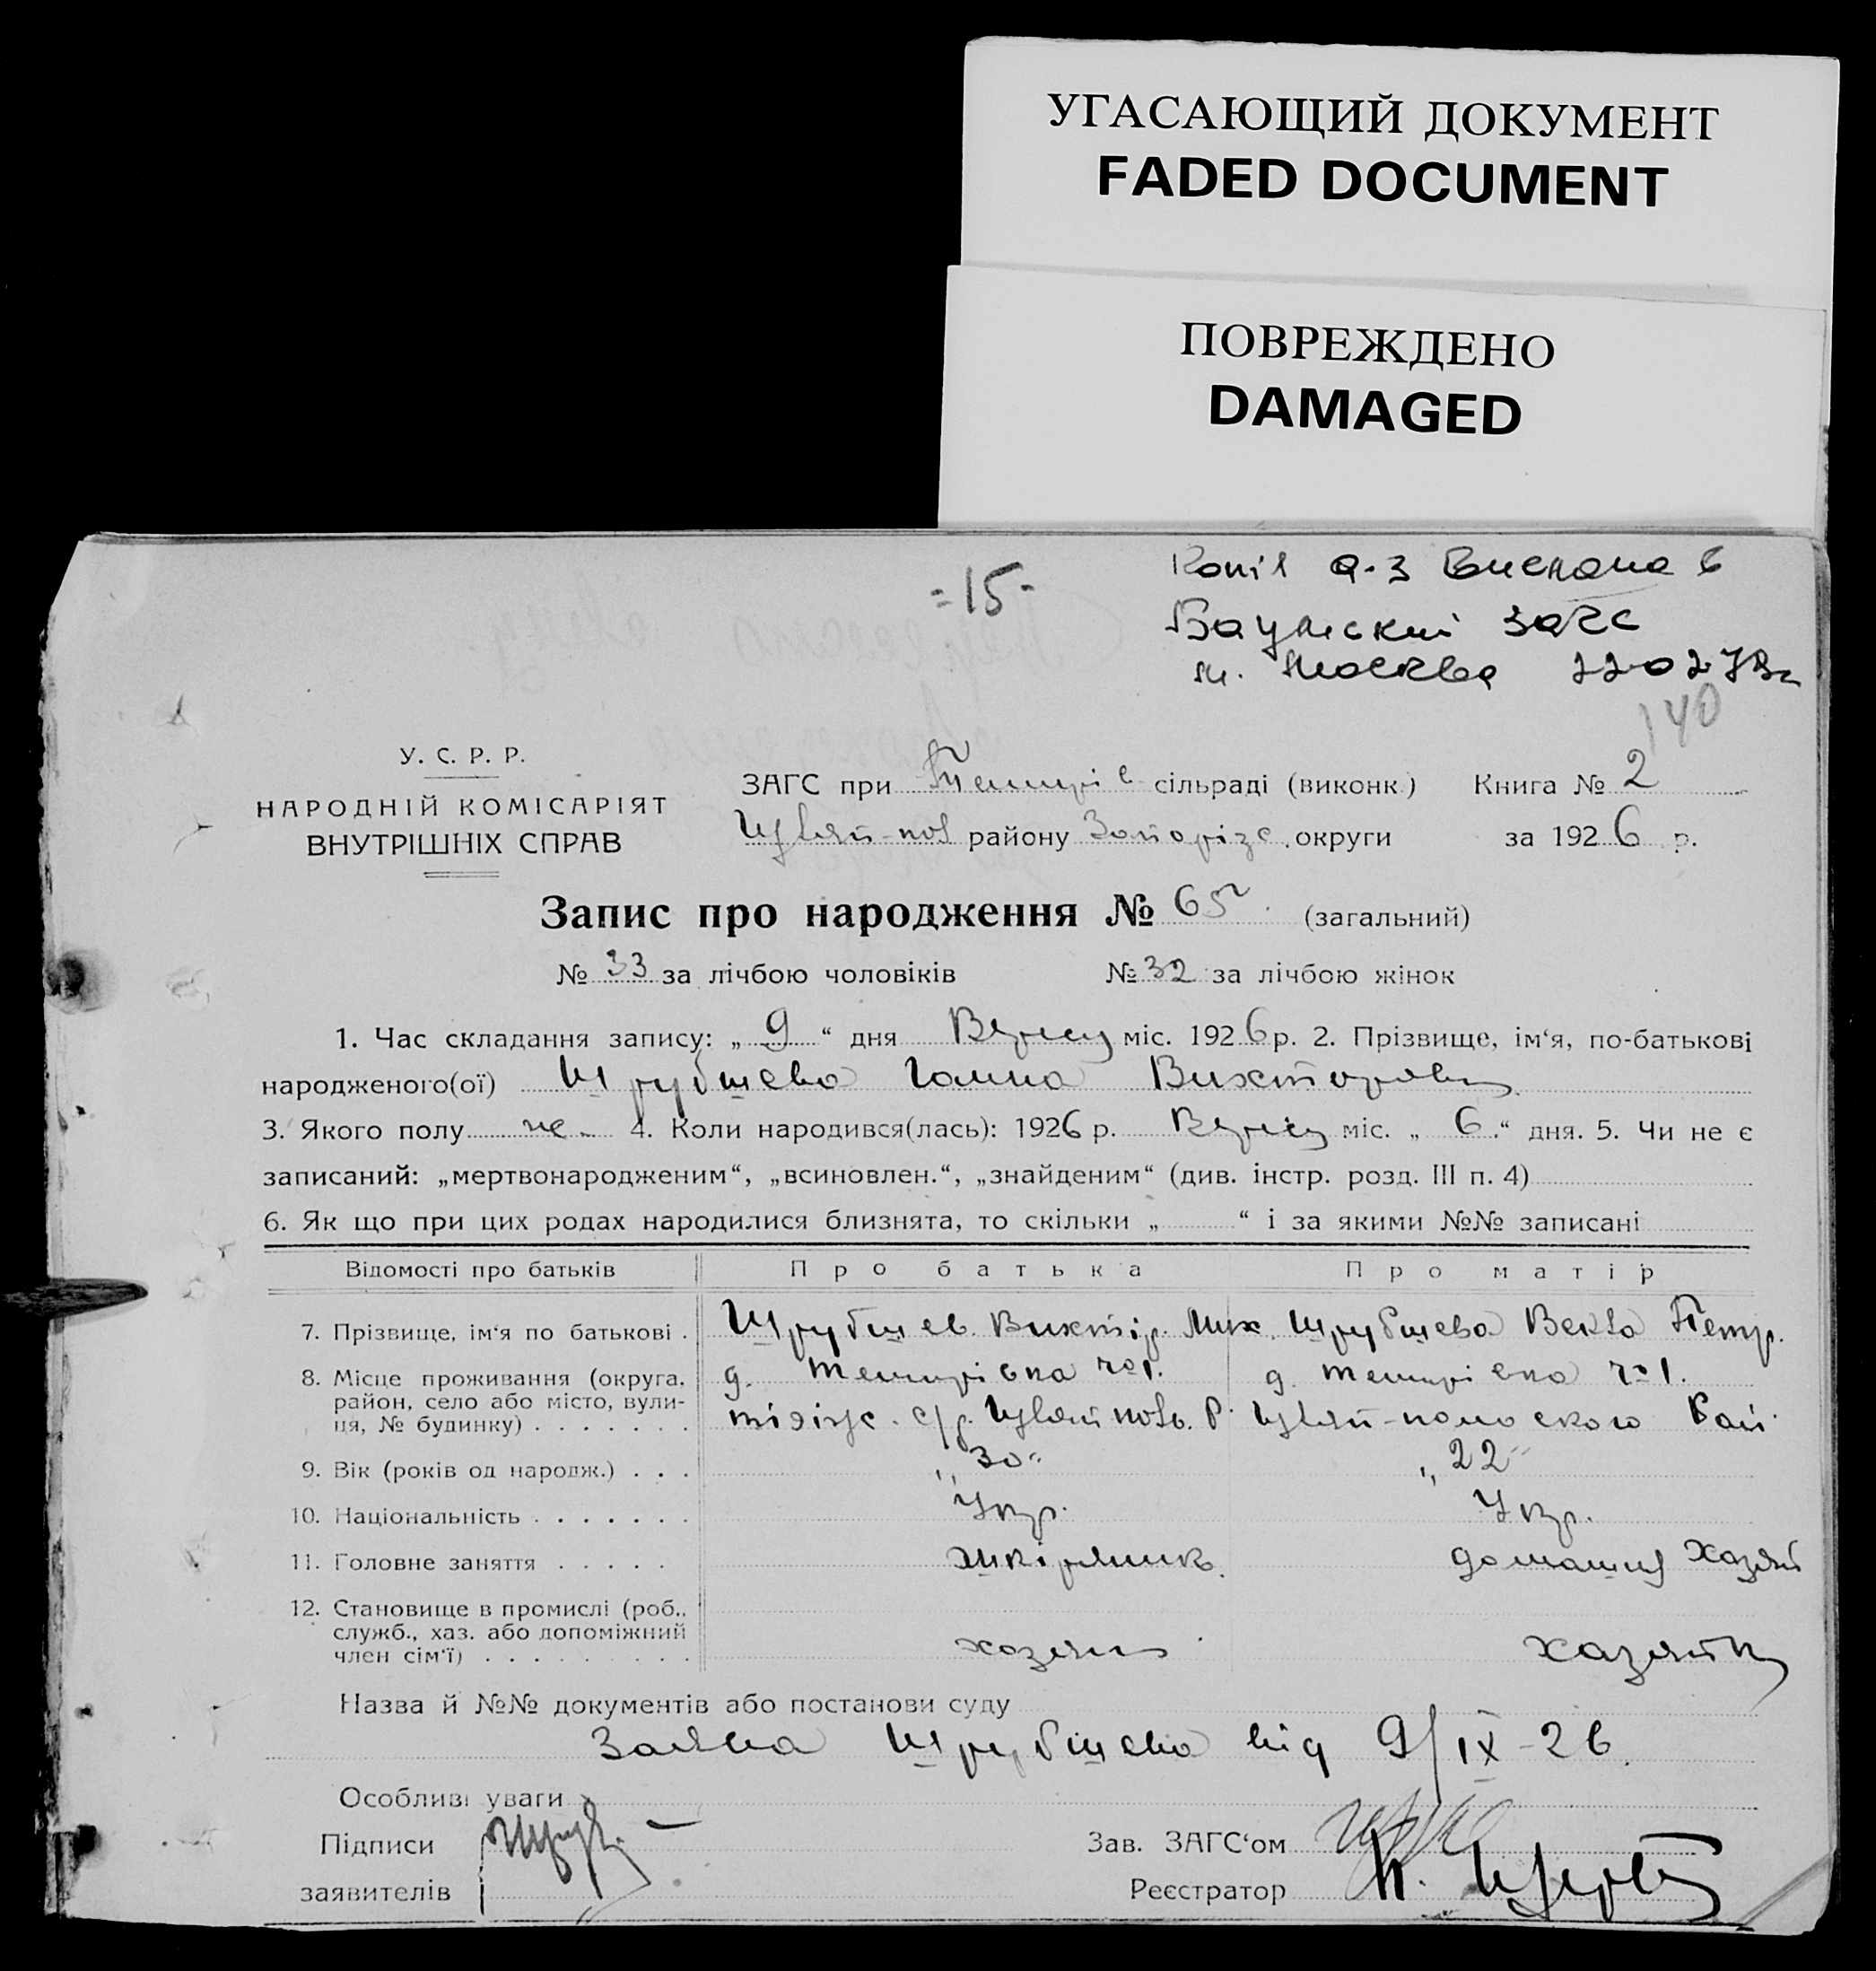 УГАСАЮЩИЙ ДОКУМЕНТ
FADED DOCUMENT
ПОВРЕЖДЕНО
DAMAGED
=15-
Копія а-з Вислана в
Баумскій загс
м. Москва
140
У. С. Р. Р.
НАРОДНІЙ КОМІСАРІЯТ
ВНУТРІШНІХ СПРАВ
ЗАГС при сільраді (виконк.) Книга № 2
району Запоріз. округи за 1926 р.
Запис про народження № 65 (загальний)
№ 33 за лічбою чоловіків № 32 za лічбою жінок
1. Час складання запису: „ 9 “ дня Вересн міс. 1926 р. 2. Прізвище, ім‘я, по-батькові
народженого(ої) Шрубщева Ганна Викторовн
3. Якого полу же- 4. Коли народився(лась): 1926 р. Вересн міс. „ 6 “ дня. 5. Чи не є
записаний: „мертвонародженим“, „всиновлен.“, „знайденим“ (див. інстр. розд. III п. 4)
6. Як що при цих родах народилися близнята, то скільки „ “ і за якими №№ записані
Відомості про батьків Про батька Про матір
7. Прізвище, ім‘я по батькові . Шрубщев Виктір. Мих. Шрубщева Векла Петр.
8. Місце проживання (округа, д. Темирівка №1. д. Темирівка №1.
район, село або місто, вули-
ця, № будинку) . . . . . . . с/р. Р. Рай.
9. Вік (років од народж.) . . . „30“ „22“
10. Національність . . . . . . . Укр. Укр.
11. Головне заняття . . . . . шкіряник. домашня хазяй
12. Становище в промислі (роб.,
служб., хаз. або допоміжний
член сім‘ї) . . . . . . . . . хазяин хазяйк
Назва й №№ документів або постанови суду
Заява Шрубщева від 9/IX-26.
Особливі уваги
Підписи Зав. ЗАГС‘ом
заявителів Реєстратор